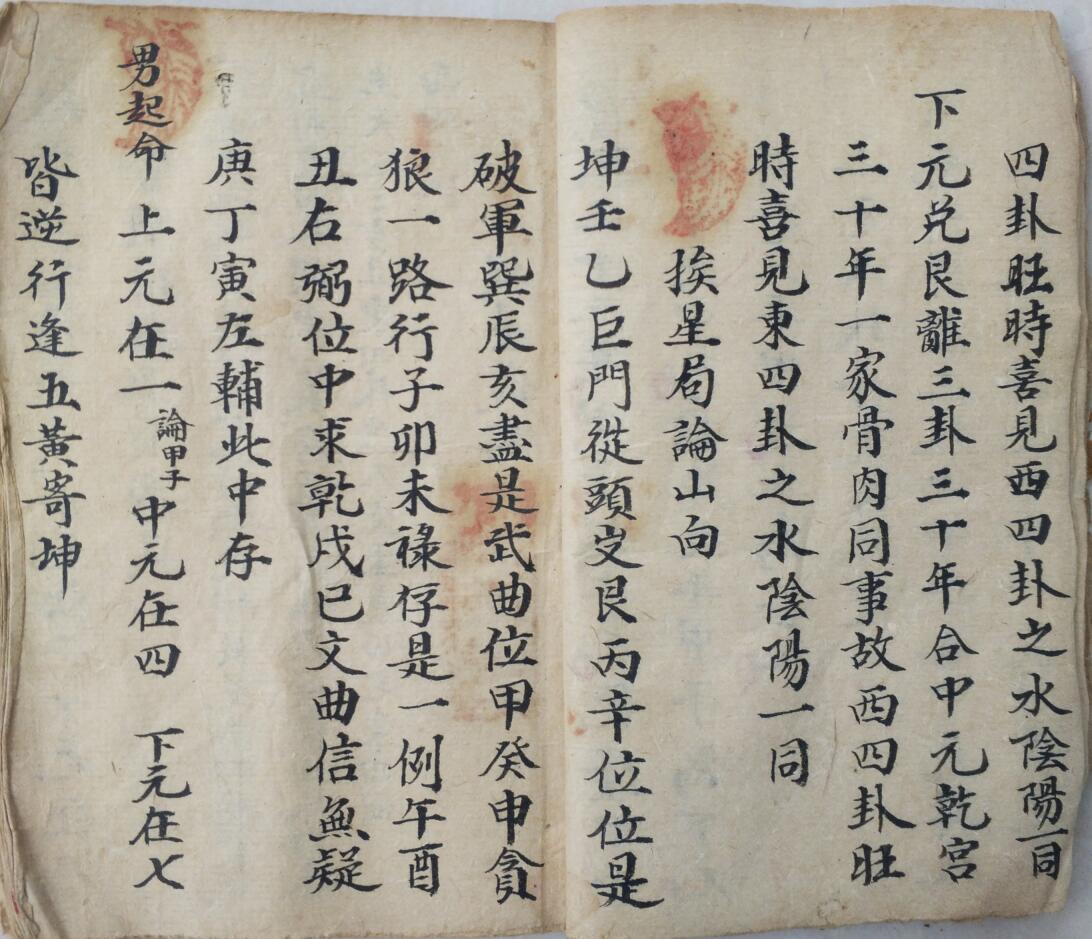 四卦旺時喜見西四卦之水陰陽一同
下元兌艮離三卦三十年合中元乾宮
三十年一家骨肉同事故西四卦旺
時喜見東四卦之水陰陽一同
挨星局論山向
坤壬乙巨門從頭出艮丙辛位位是
破軍巽辰亥盡是武曲位甲癸申貪
狼一路行子卯未祿存是一例午酉
丑右弼位中求乾戌巳文曲信無疑
庚丁寅左輔此中存
男起命 上元在一 論甲子 中元在四 下元在七
皆逆行逢五黃寄坤